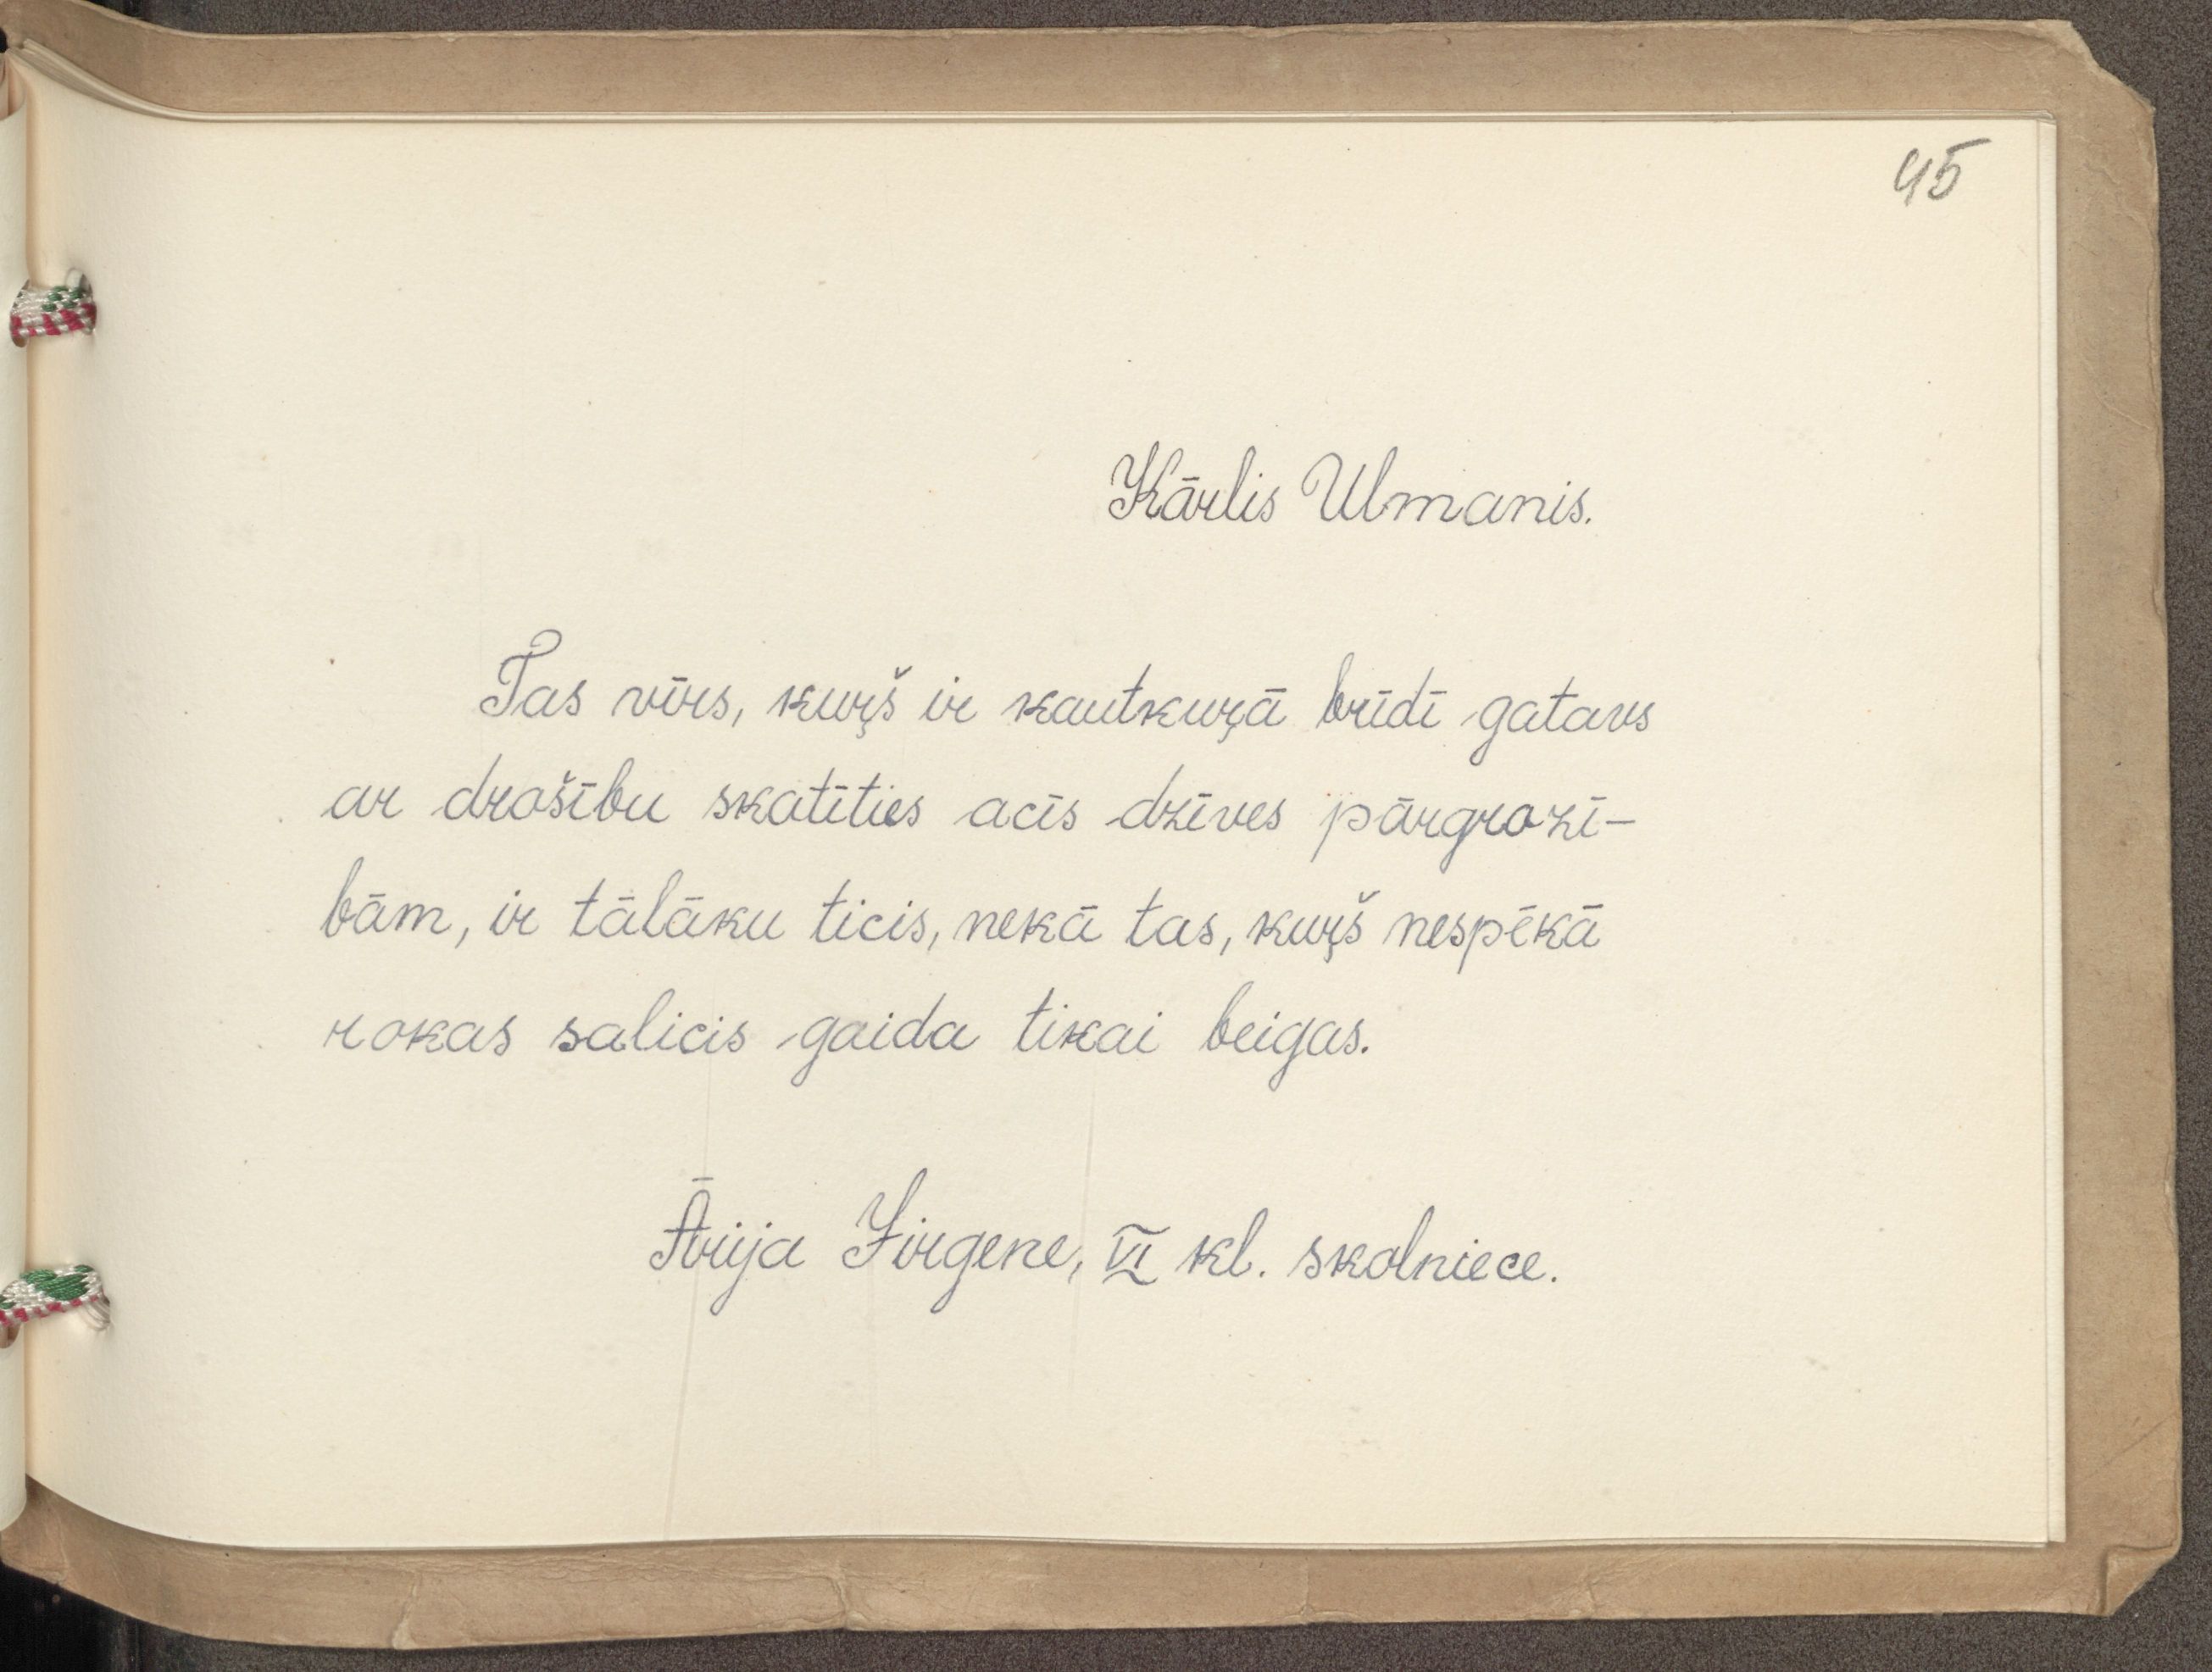 45
Kārlis Ulmanis.
Tas vīrs, kuŗš ir kautkuŗā brīdī gatavs
ar drošību skatīties acīs dzīves pārgrozī-
bām, ir tālāku ticis, nekā tas, kuŗš nespēkā
rokas salicis gaida tikai beigas.
Ārija Zirgene, VI kl. skolniece.